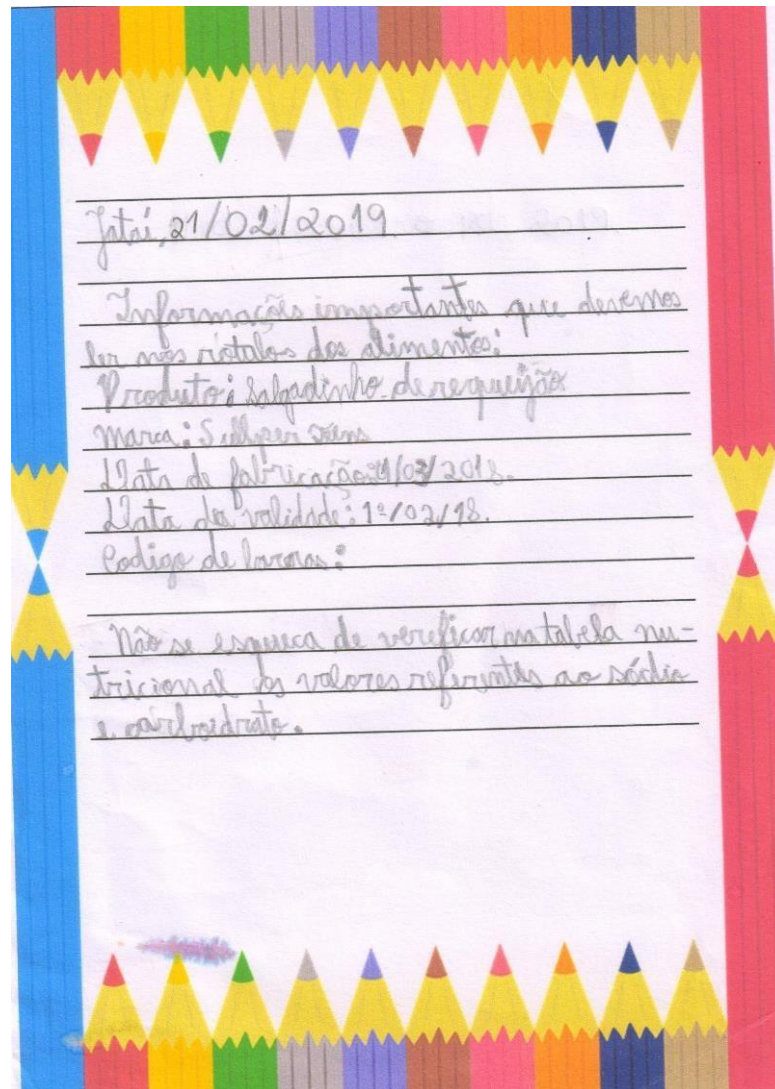 Jataí, 21/02/2019.
Informações importantes que devemos
ler nos rótulos dos alimentos:
Produto: Salgadinho de requeijão
Marca:
Data de fabricação: /2018.
Data da validade: 1º/02/18.
Codigo de barras:
Não se esqueca de vereficar na tabela nu-
tricional os valores referentes ao sódio
e carboidrato.